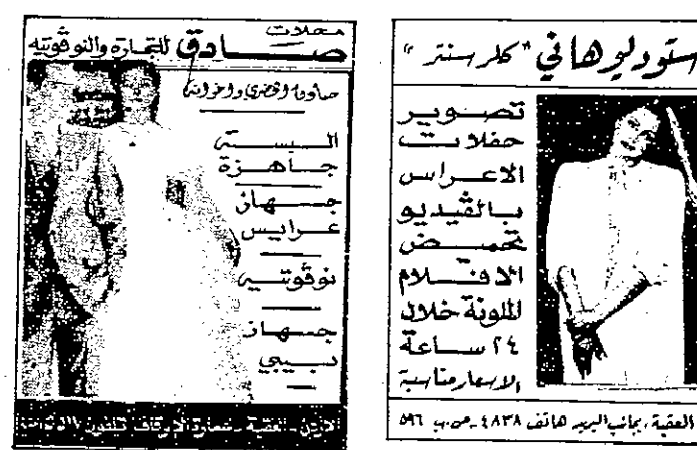 محلات
صادق للتجارة والنوفوتيه
واخوانه
البسة
جاهزة
جهاز
عرايس
نوفوتيه
جهاز
بيبي
الاردن - العقبة - عمارة الاوقاف تلفون
ستوديو هاني "كلر سنتر"
تصوير
حفلات
الاعراس
بالفيديو
تحميض
الافلام
الملونة خلال
٢٤ ساعة
الاسعار مناسبة
العقبة، بجانب البريد هاتف ٤٨٣٨ - ص.ب ٥٩٦